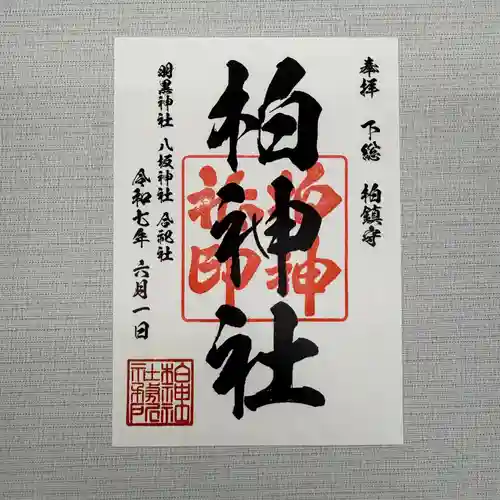 奉拝 下総 柏鎮守
柏神社
羽黒神社 八坂神社 合祀社
令和七年 六月一日
柏神社印